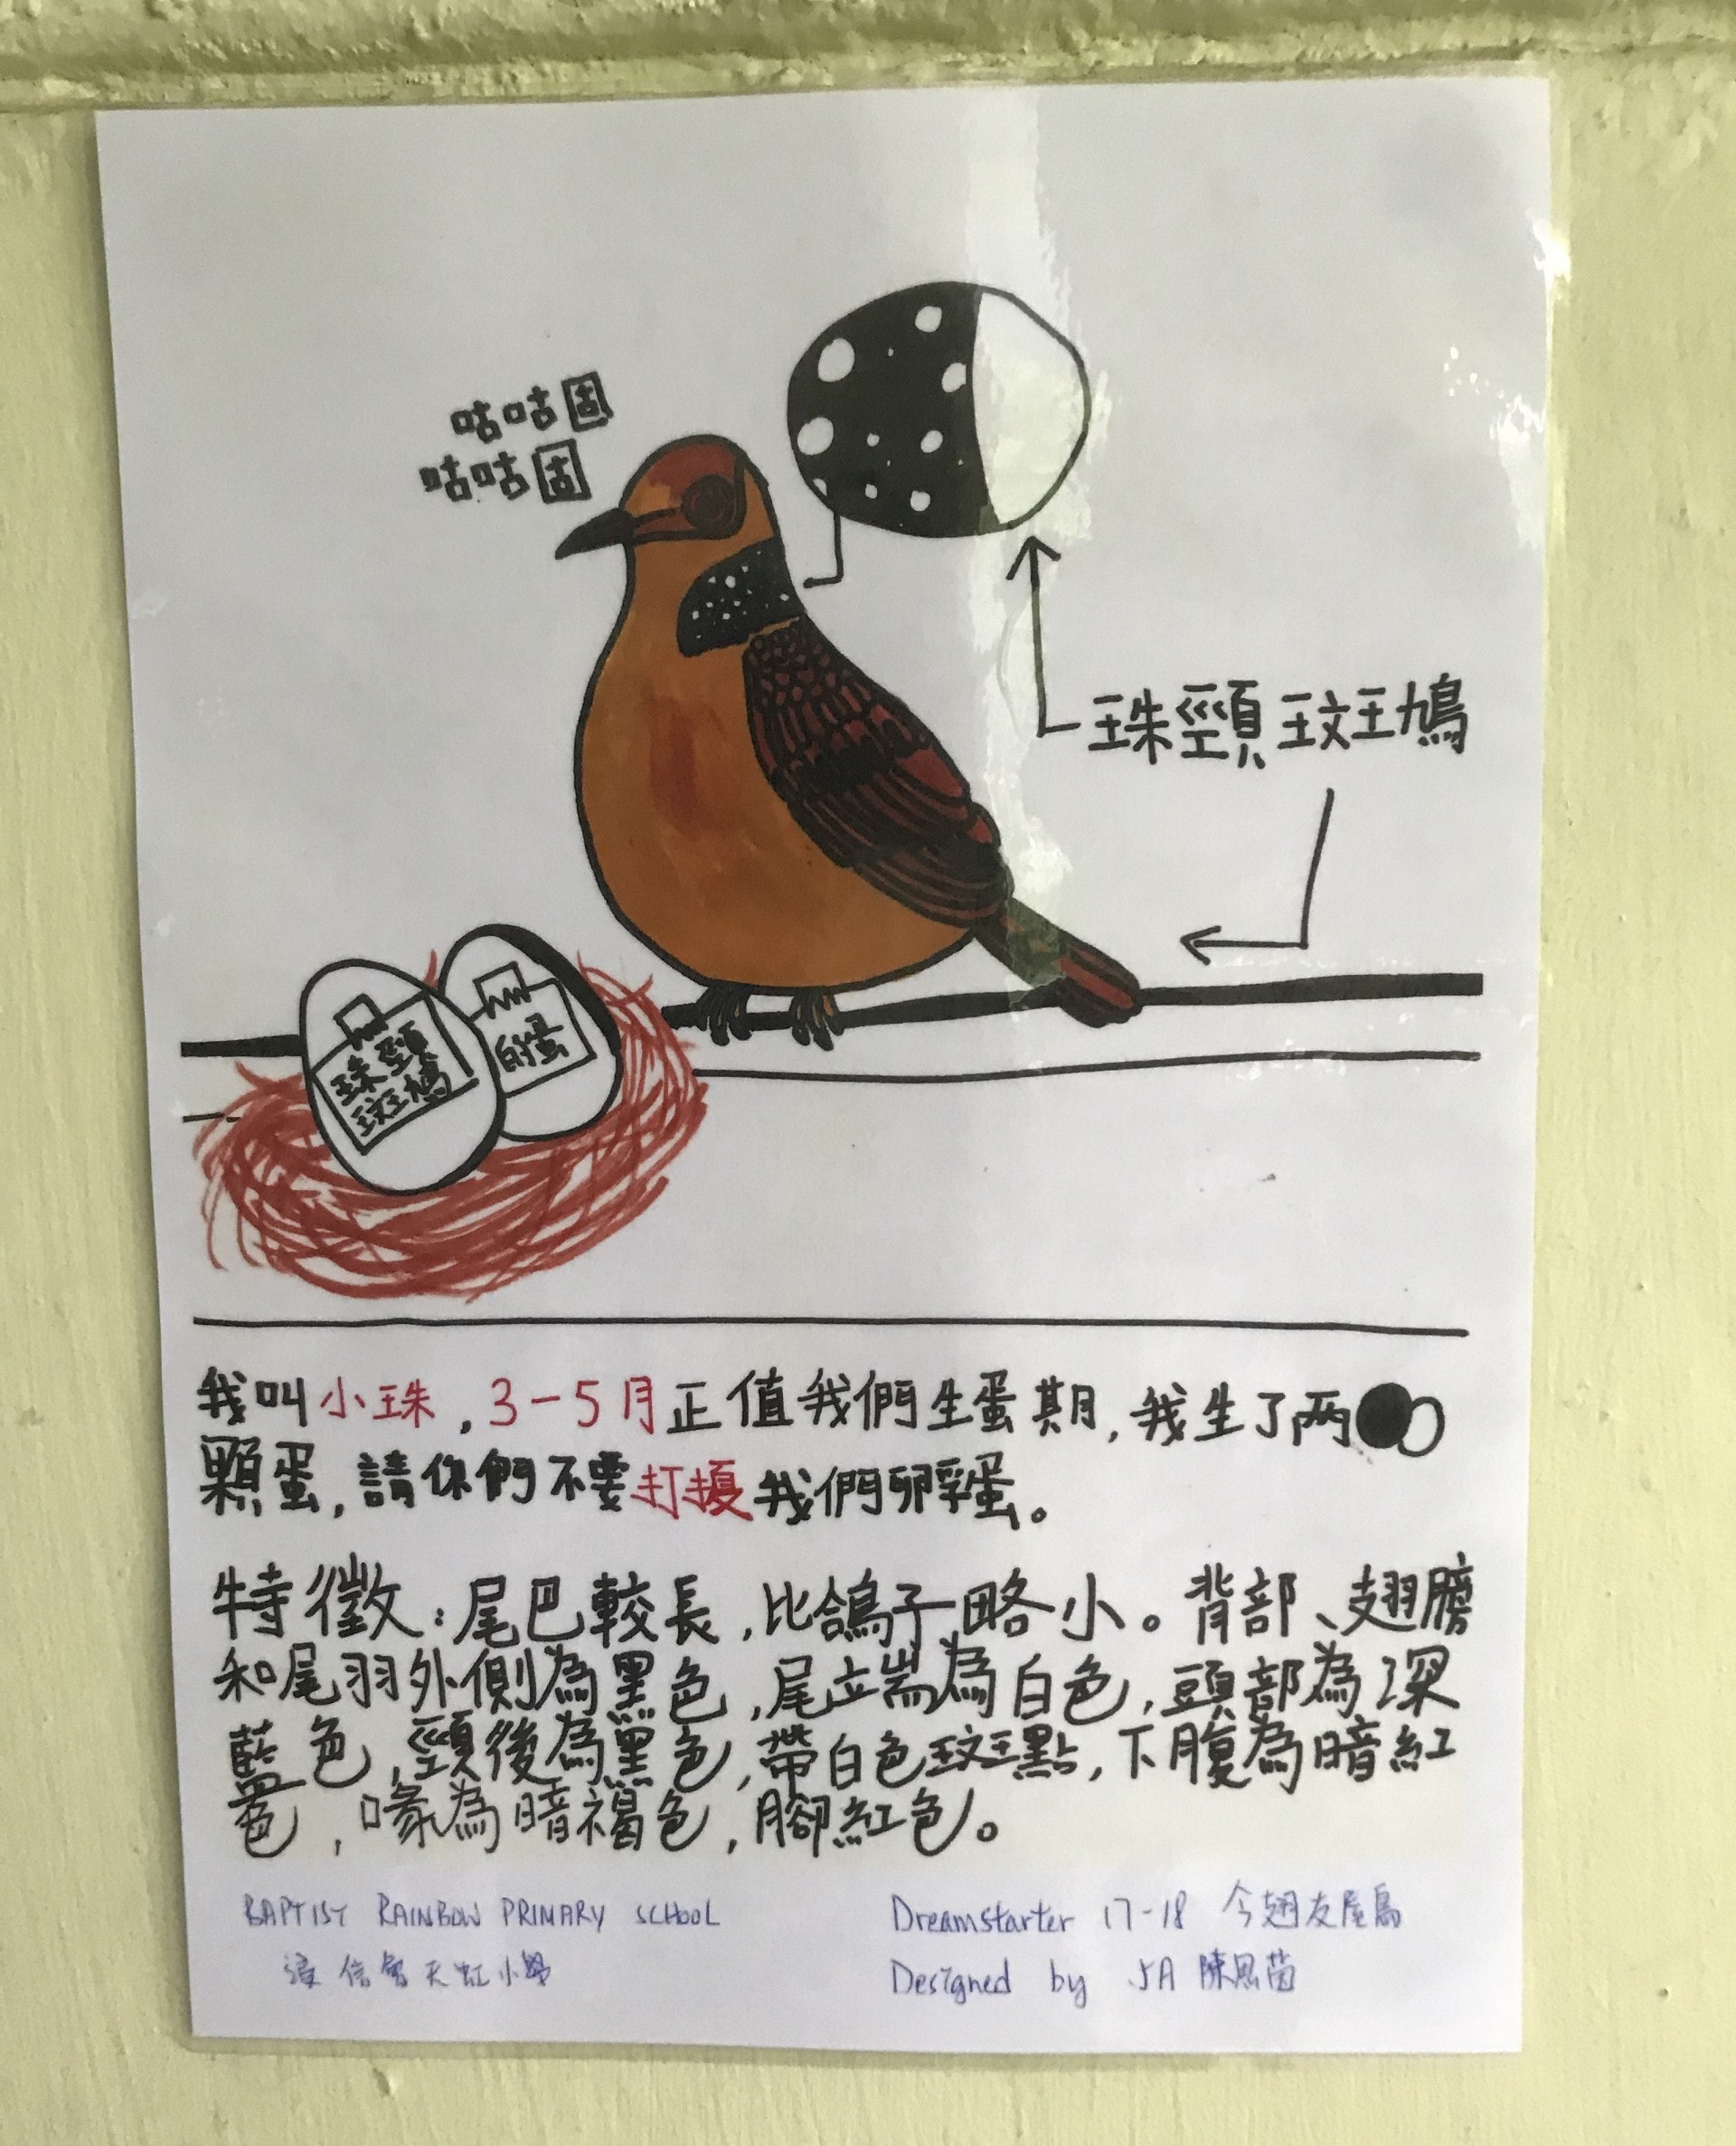 咕咕固
咕咕固
珠頸斑鳩
珠頸
斑鳩
的蛋
我叫小珠,3-5月正值我們生蛋期,我生了两
顆蛋,請你們不要打擾我們孵蛋。
特徵:尾巴較長,比鴿子略小。背部、翅膀
和尾羽外側為黑色,尾端為白色,頭部為深
藍色,頸後為黑色,帶白色斑點,下腹為暗紅
色,喙為暗褐色,腳紅色。
BAPTIST RAINBOW PRIMARY SCHOOL
浸信會天虹小學
Dreamstarter 17-18 今翅友屋鳥
Designed by 5A 陳思茵